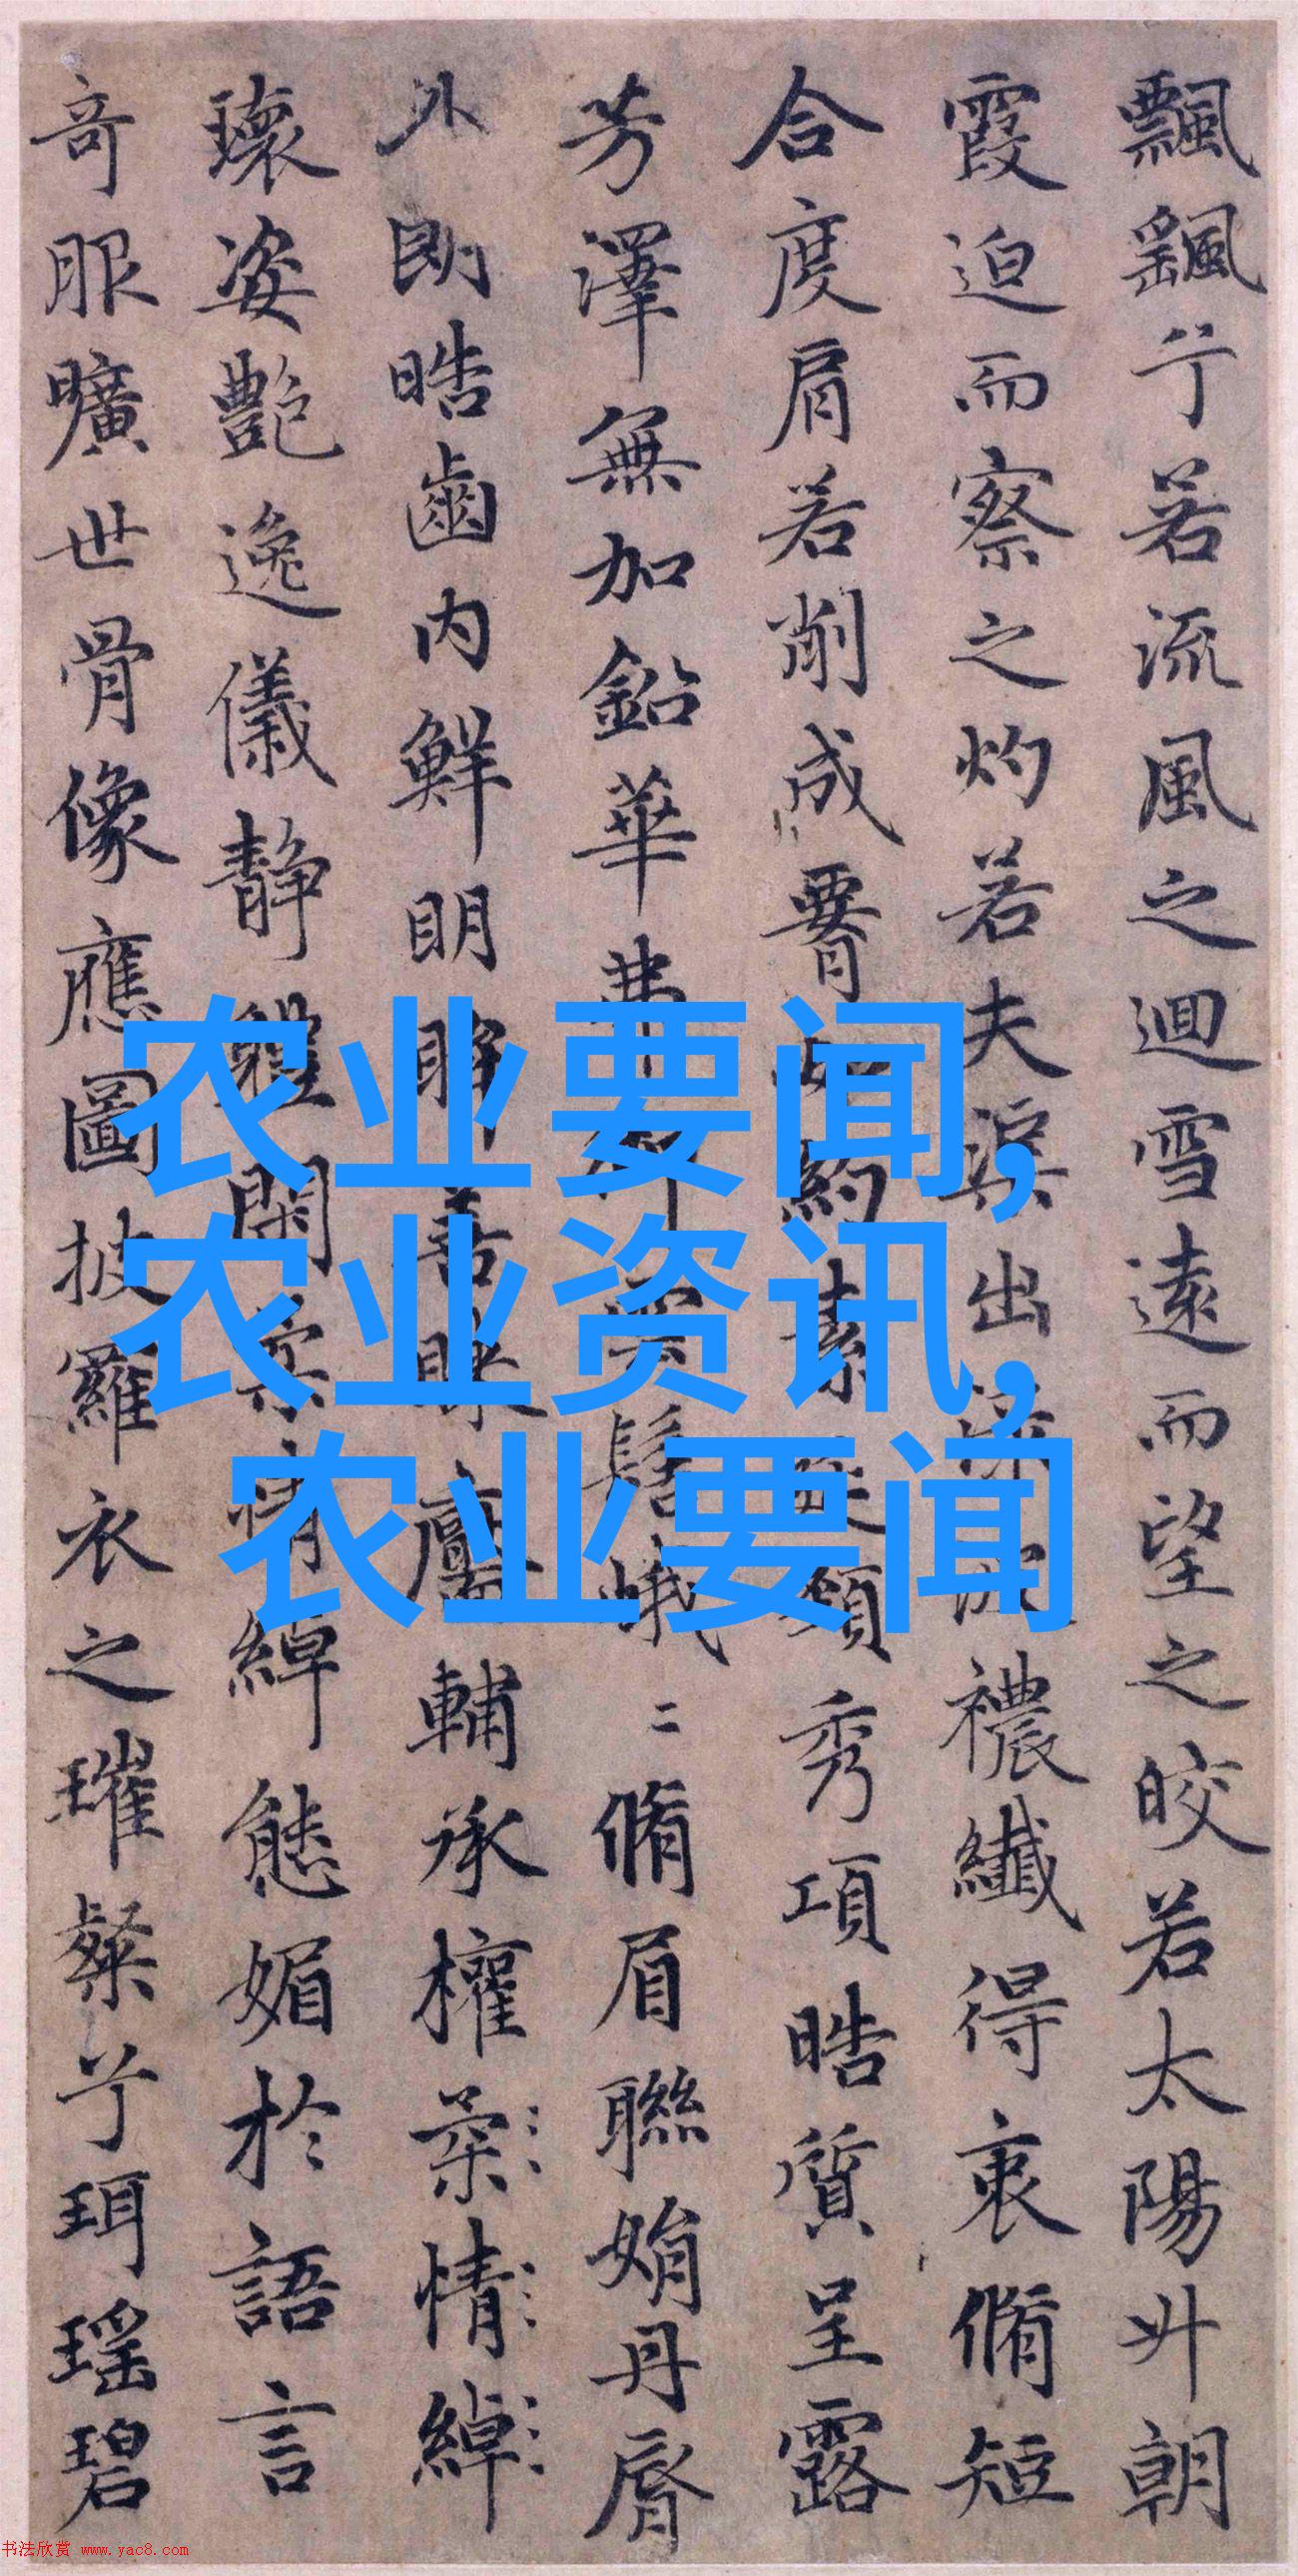 飄飖兮若流風之迴雪遠而望之皎若太陽升朝
霞迫而察之灼若夫蕖出淥波襛纖得衷脩短
合度肩若削成要約素延頸秀項皓質呈露
芳澤無加鉛華弗御雲髻峨二脩眉聯娟丹脣
外朗皓齒内鮮明眸善睞靨輔承權柔情綽
瓌姿艶逸儀静體閑柔情綽態媚於語言
奇服曠世骨像應圖披羅衣之璀粲兮珥瑶碧
农业要闻,
农业资讯,
农业要闻
书法欣赏 www.yac8.com